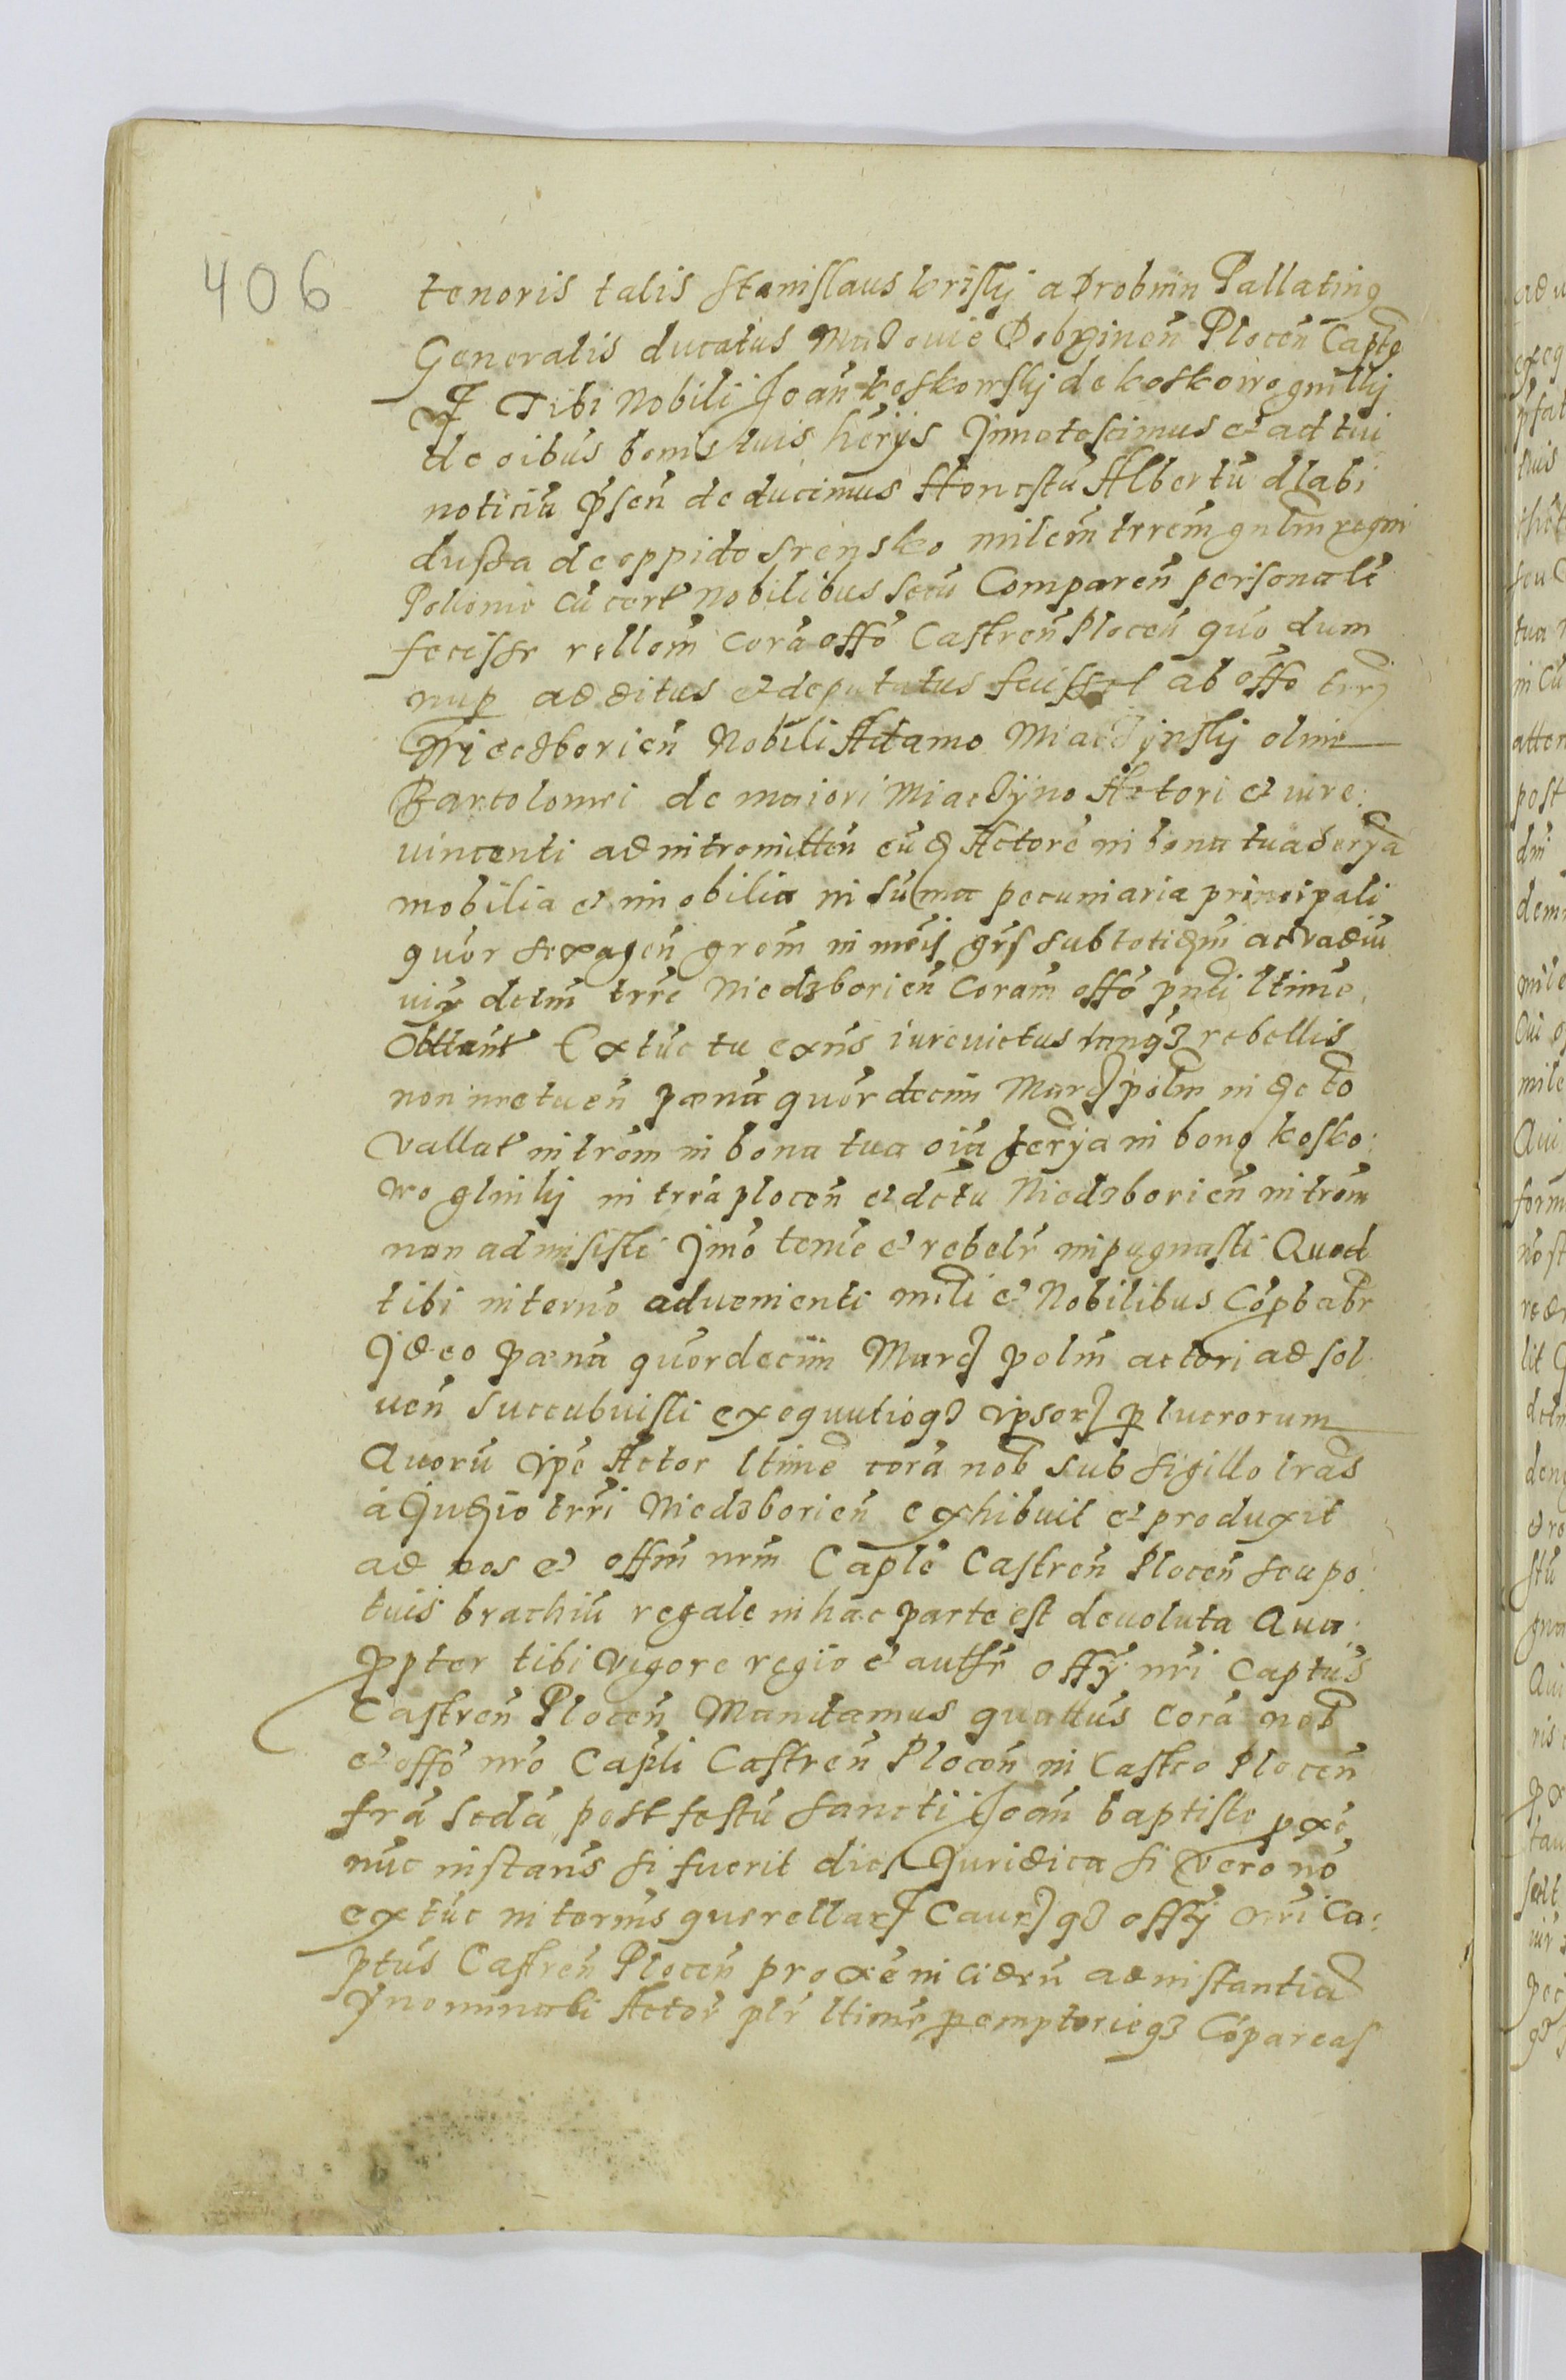 406
tenoris talis Stanislaus krisky a Drobnin Pallating
Generalis ducatus Mazouie Dobrinen Plocen Capte
Tibi Nobili Joan koskowskj de koskowo gnilkj
de oibus bonis tuis herijs Innotescimus et ad tui
noticia psen deducimus Honestu Albertu dlabi
duska de oppido Srensko milem trrem gnlm regni
Polonie cu cert Nobilibus secu Comparen personalr
fecisse rellom cora offo Castren Plocen quo dum
nup additus et deputatus fuisset ab offo trrj
Niedzborien Nobili Adamo Miaczynskj olim
Bartolomei de maiori Miaczyno Actori et iure
uincenti ad intromitten eud Actore in bona tua herya
mobilia et imobilia in suma pecuniaria principali
quor sexagen grom in meis grs sub totidm ad vadiu
uig detm trre Niedzborien Coram offo pnti ltime
Obttent Extuc tu exns iureuictus tanq3 rebellis
non metuen pena quordecim Marc polm in dcto
vallat introm in bona tua oia herya in bono kosko
wo glinkj in trra plocen et dctu Niedzborien introm
non admisisti Imo teme et rebelr inpugnasti Quod
tibi in terno aduenienti mili et Nobilibus Copbabr
Ideo pena quordecim Marc polm actori ad sol
uen succubuisti exequutioq3 ipsor p lucrorum
Quoru ipe Actor ltime cora nob sub sigillo tras
a Judio trri Niedzborien exhibuit et produxit
ad nos et offm nrm Caple Castren Plocen seu po
tuis brachiu regale in hac parte est deuoluta Qua
ppter tibi vigore regio et authe offy nri Captus
Castren Plocen Mandamus quattus Cora nob
et offo nro Capli Castren Plocen in Castro Plocen
fra seda post festu sancti Joan baptiste pxe
nuc instans si fuerit dies Juridica si vero no
extuc in termis querellar Caurq3 offy nri Ca
ptus Castren Plocen proxe inciden ad instantia
Inominati Actor plr ltime pemptorieq3 Copareas